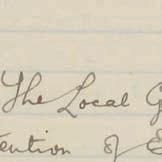 The Local G
tention of E